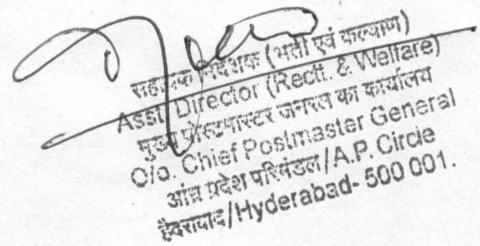 सहायक निदेशक (भर्ती एवं कल्याण)
Asst. Director (Rectt. & Welfare)
मुख्य पोस्टमास्टर जनरल का कार्यालय
O/o. Chief Postmaster General
आंध्र प्रदेश परिमंडल/A.P. Circle
हैदराबाद/Hyderabad- 500 001.